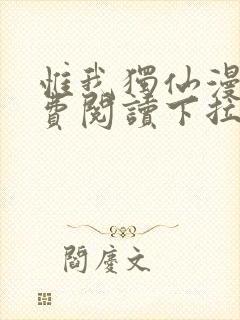 惟我獨仙漫
費閱讀下拉
閻慶文